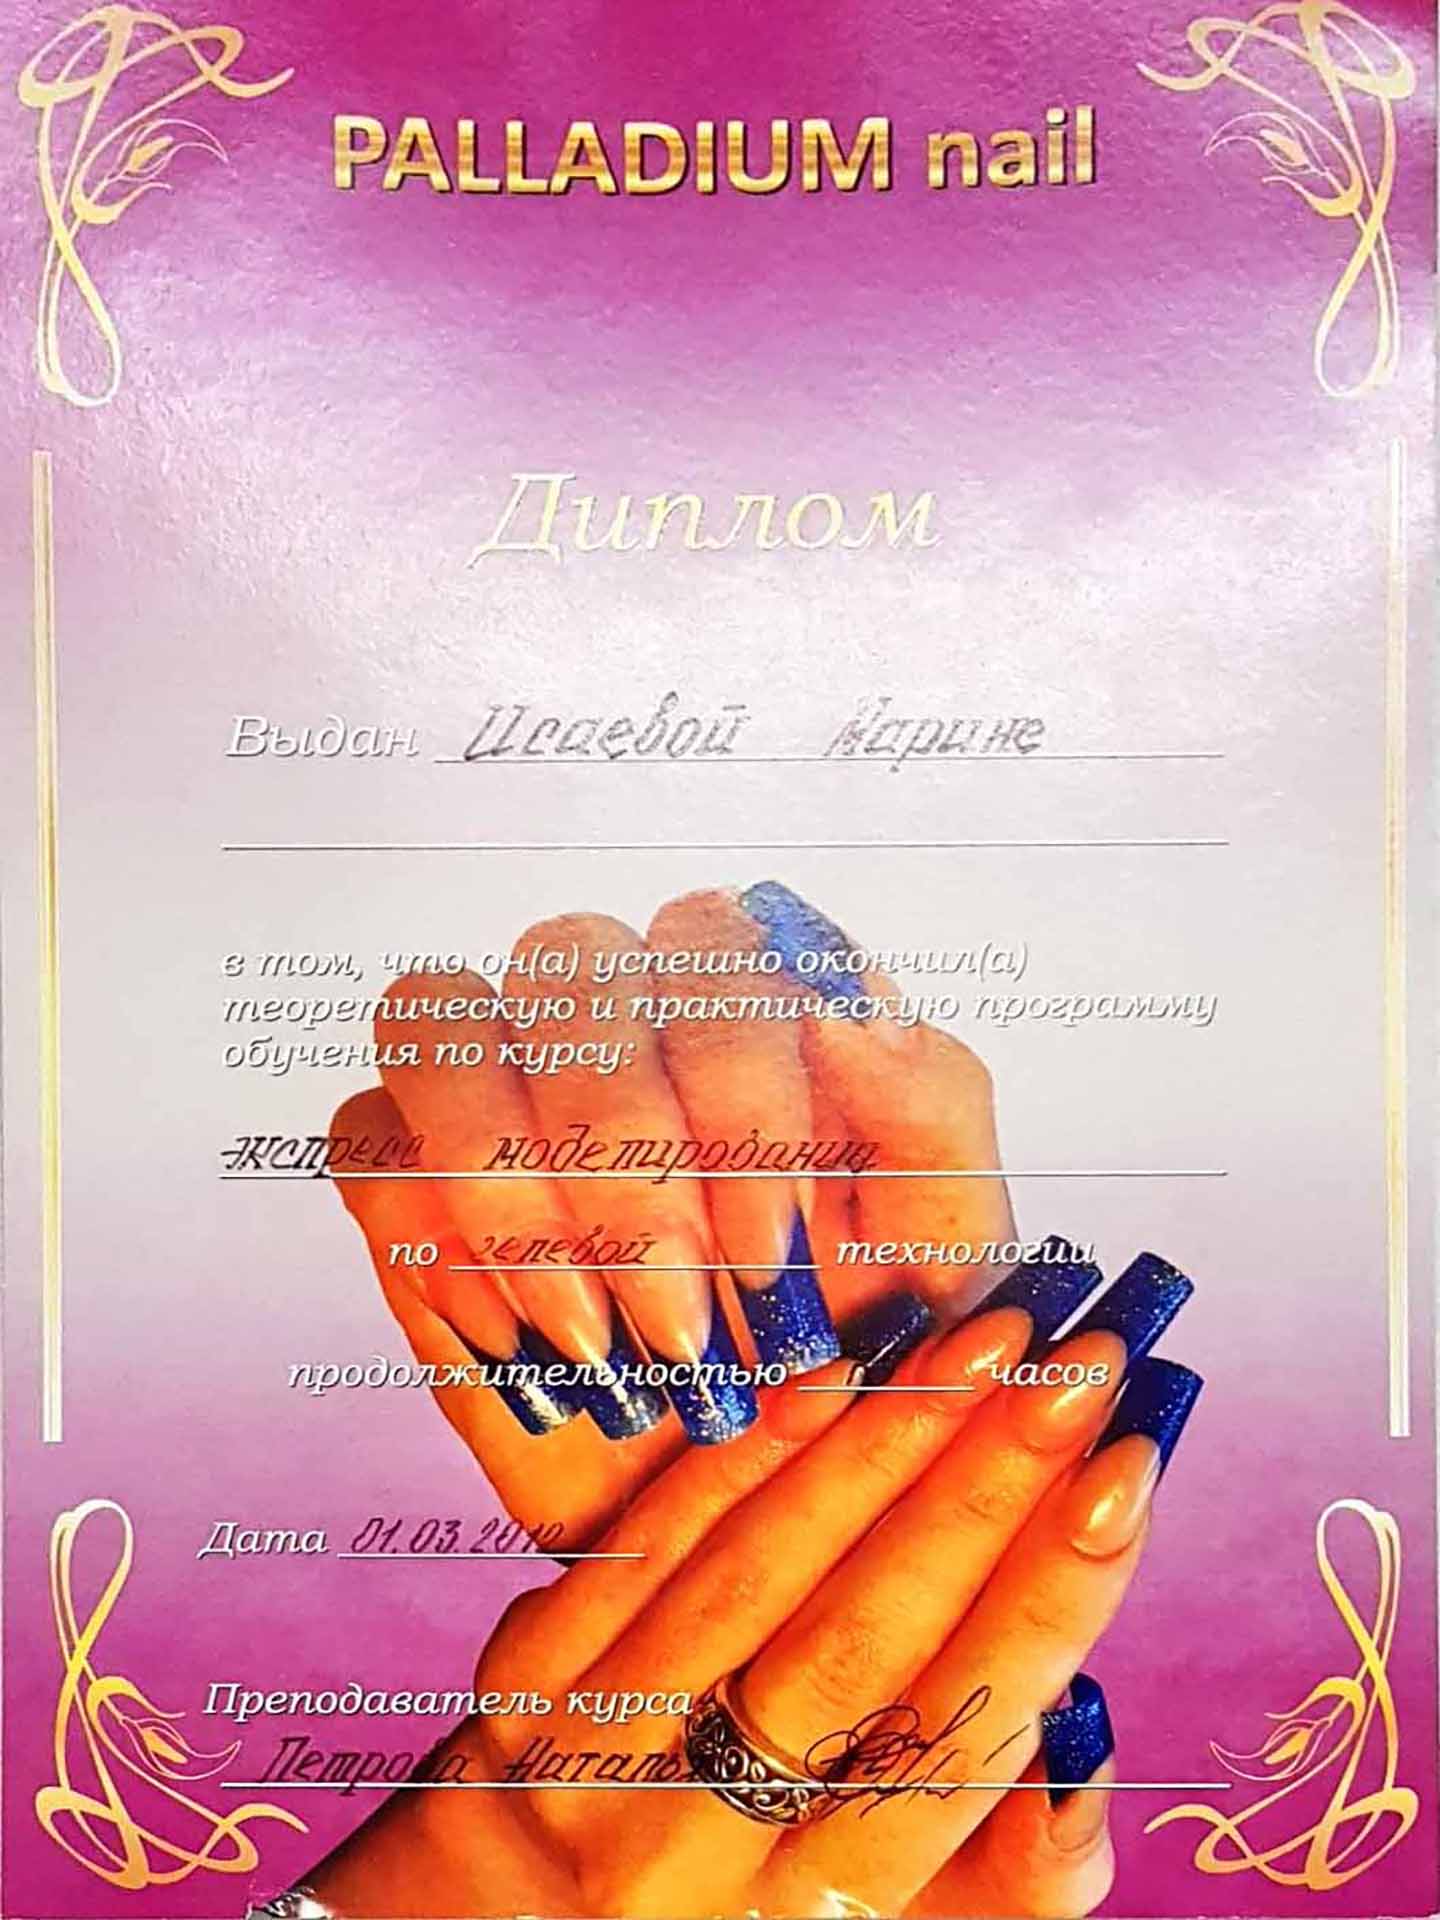 PALLADIUM nail
Диплом
Выдан Исаевой Марине
в том, что он(а) успешно окончил(а)
теоретическую и практическую программу
обучения по курсу:
экспресс моделирование
по гелевой технологии
продолжительностью часов
Дата 01.03.2012
Преподаватель курса
Петрова Наталья